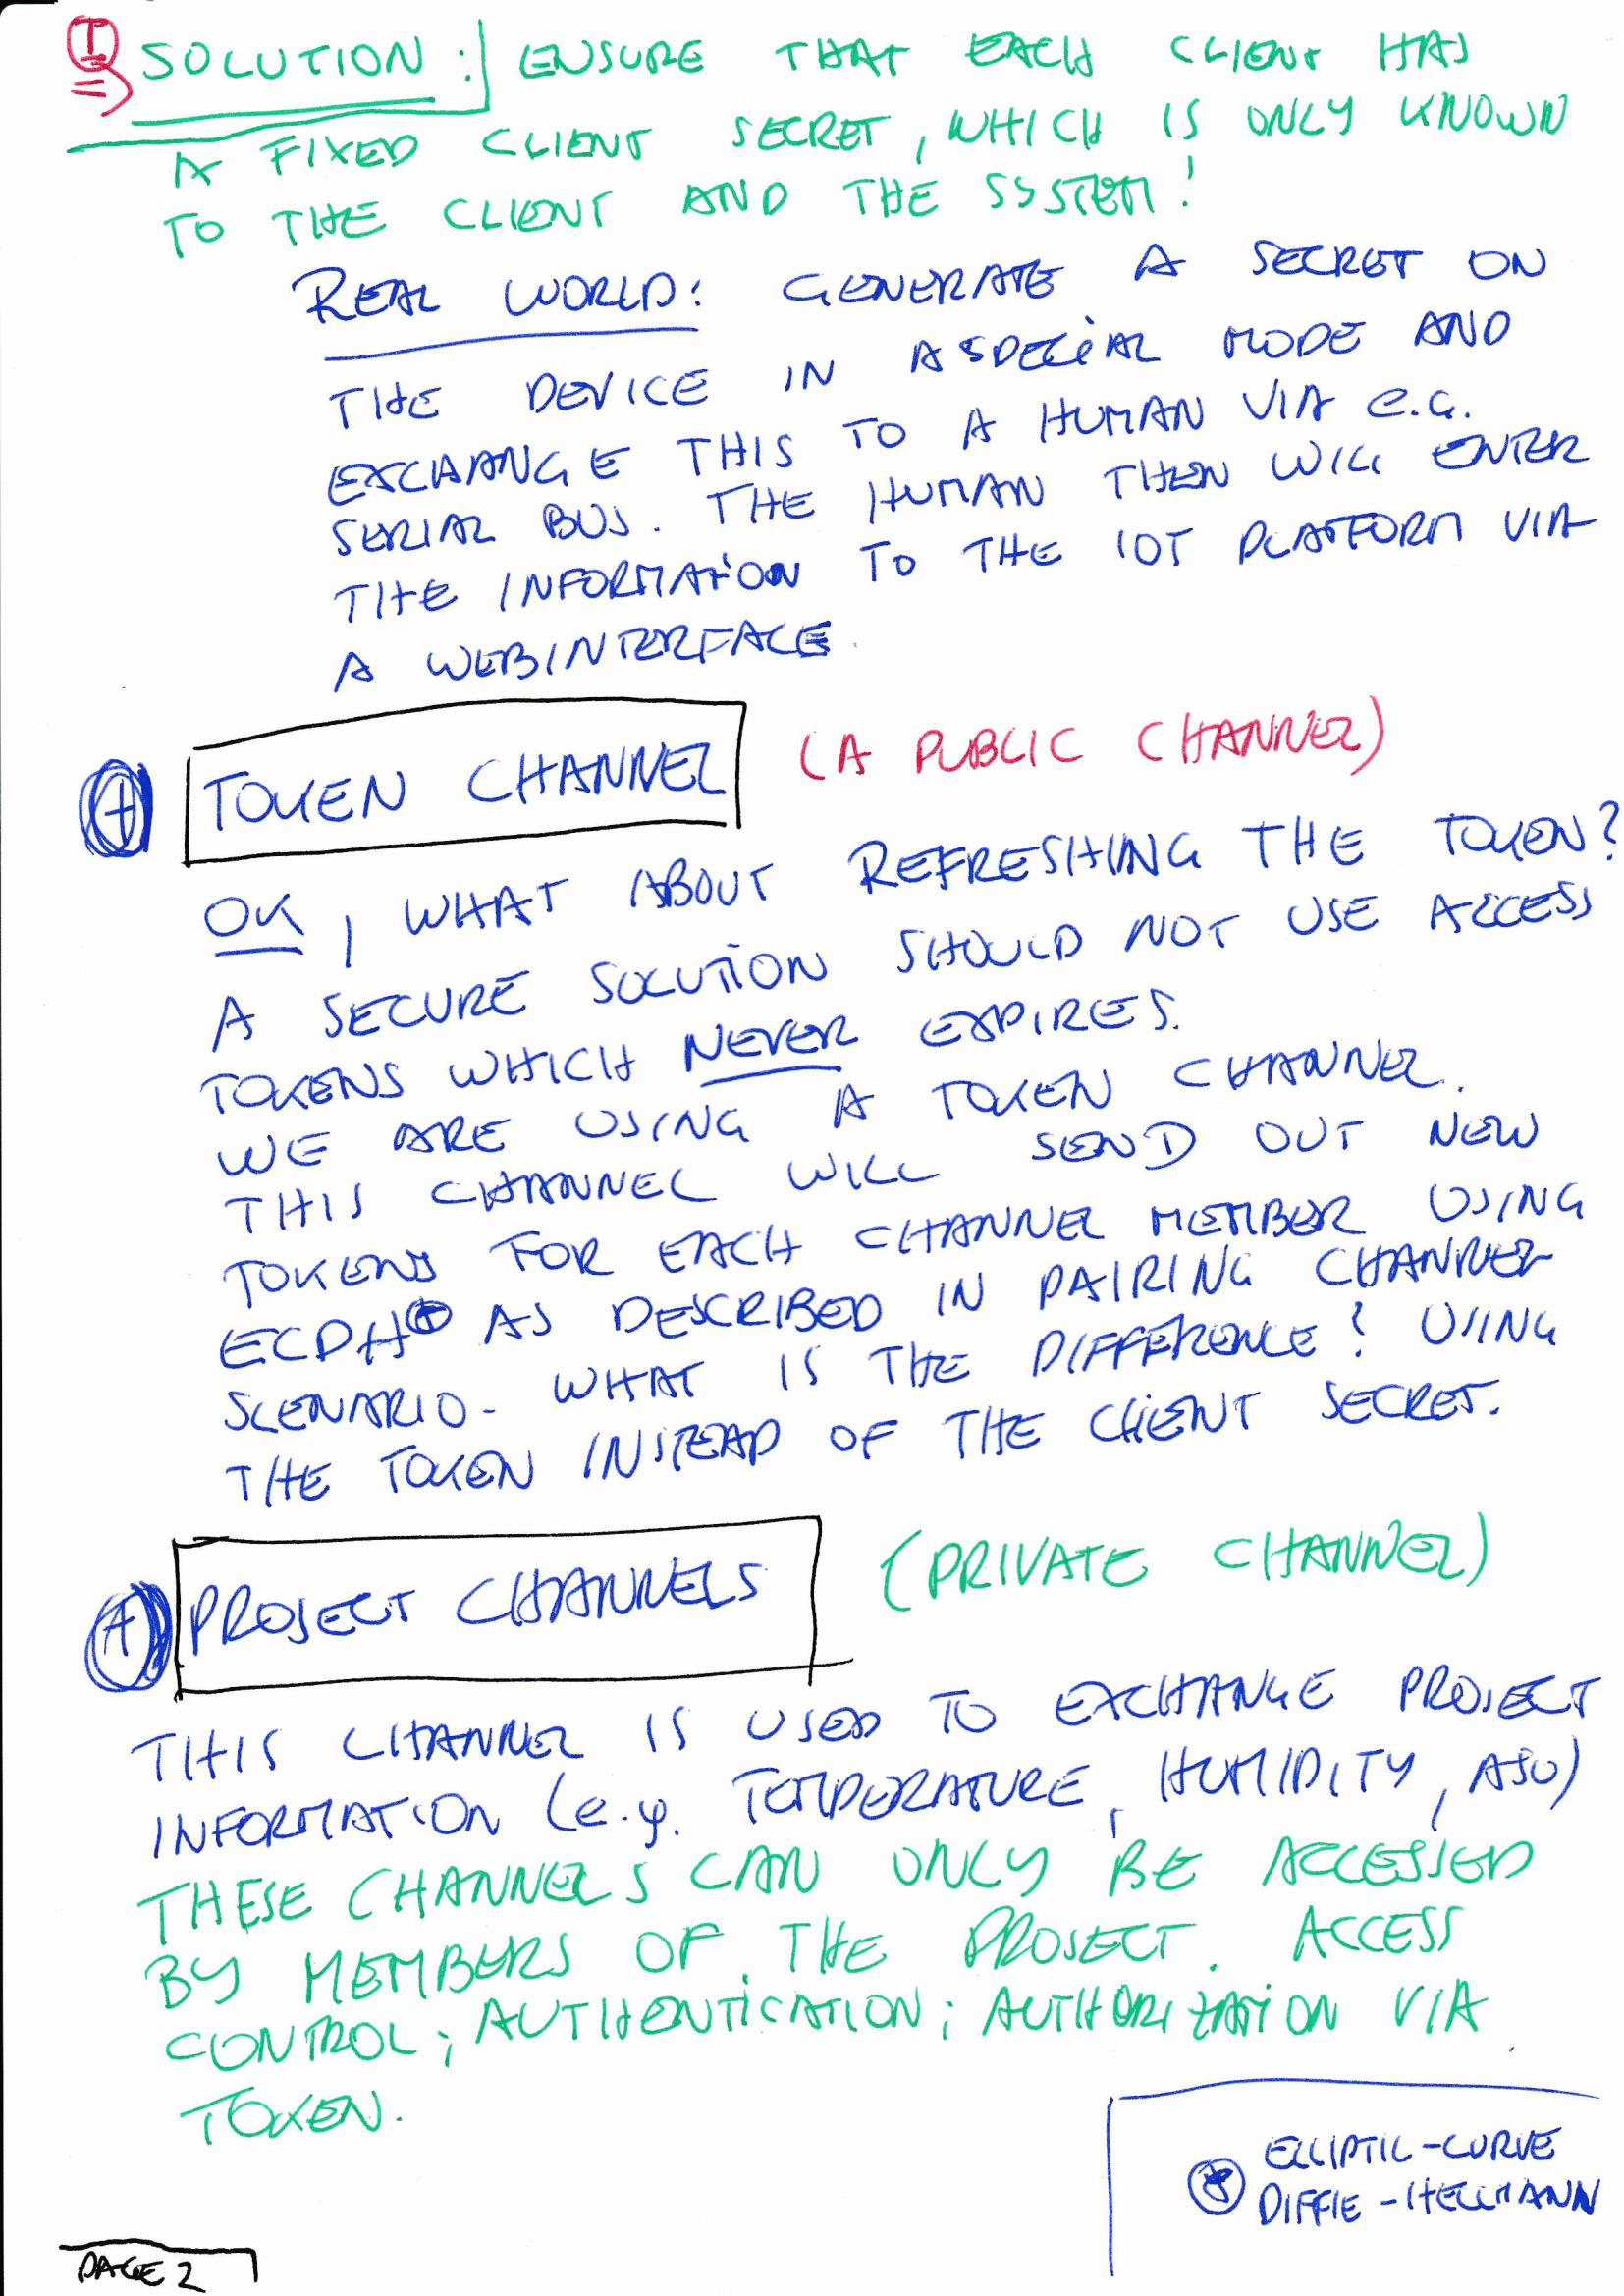 I SOLUTION: ENSURE THAT EACH CLIENT HAS
A FIXED CLIENT SECRET, WHICH IS ONLY KNOWN
TO THE CLIENT AND THE SYSTEM!
REAL WORLD: GENERATE A SECRET ON
THE DEVICE IN A SPECIAL MODE AND
EXCHANGE THIS TO A HUMAN VIA e.G.
SERIAL BUS. THE HUMAN THEN WILL ENTER
THE INFORMATION TO THE IOT PLATFORM VIA
A WEBINTERFACE.
TOKEN CHANNEL (A PUBLIC CHANNEL)
OK, WHAT ABOUT REFRESHING THE TOKEN?
A SECURE SOLUTION SHOULD NOT USE ACCESS
TOKENS WHICH NEVER EXPIRES.
WE ARE USING A TOKEN CHANNEL.
THIS CHANNEL WILL SEND OUT NEW
TOKENS FOR EACH CHANNEL MEMBER USING
ECDH* AS DESCRIBED IN PAIRING CHANNEL
SCENARIO. WHAT IS THE DIFFERENCE? USING
THE TOKEN INSTEAD OF THE CLIENT SECRET.
PROJECT CHANNELS (PRIVATE CHANNEL)
THIS CHANNEL IS USED TO EXCHANGE PROJECT
INFORMATION (e.g. TEMPERATURE, HUMIDITY, ASO)
THESE CHANNELS CAN ONLY BE ACCESSED
BY MEMBERS OF THE PROJECT. ACCESS
CONTROL; AUTHENTICATION; AUTHORIZATION VIA
TOKEN.
* ELLIPTIC-CURVE
DIFFIE-HELLMANN
PAGE 2